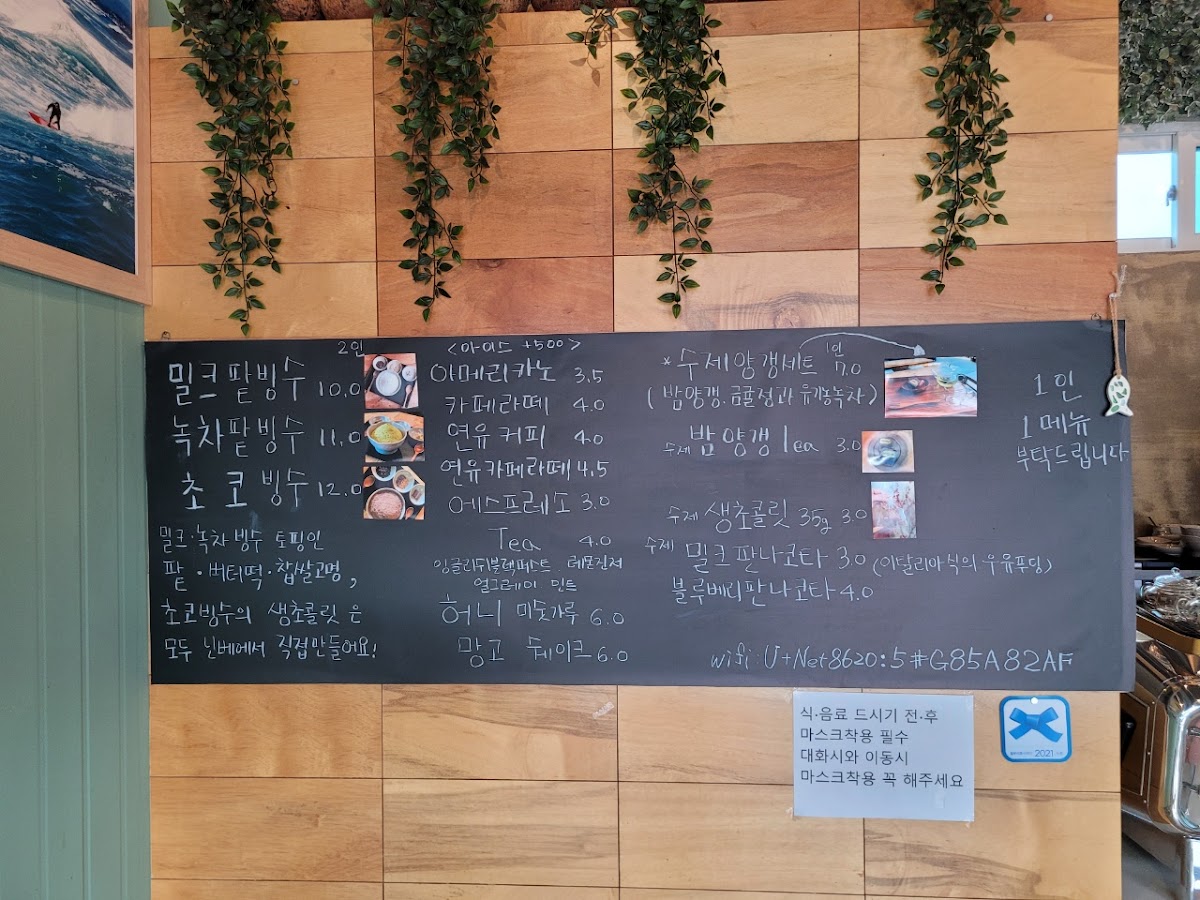 2인
밀크팥빙수 10.0
녹차팥빙수 11.0
초코빙수 12.0
밀크·녹차빙수 토핑인
팥·버터떡·찹쌀고명,
초코빙수의 생초콜릿은
모두 닌베에서 직접만들어요!
<아이스 +500>
아메리카노 3.5
카페라떼 4.0
연유커피 4.0
연유카페라떼 4.5
에스프레소 3.0
Tea 4.0
잉글리쉬블랙퍼스트 레몬진저
얼그레이 민트
허니 미숫가루 6.0
망고 쉐이크 6.0
*수제양갱세트 1인 7.0
(밤양갱, 금귤정과 유기농녹차)
수제 밤양갱 1ea 3.0
수제 생초콜릿 35g 3.0
수제 밀크판나코타 3.0 (이탈리아식의 우유푸딩)
블루베리판나코타 4.0
wifi: U+Net8620:5#G85A82AF
1인
1메뉴
부탁드립니다
식·음료 드시기 전·후
마스크착용 필수
대화시와 이동시
마스크착용 꼭 해주세요
2021